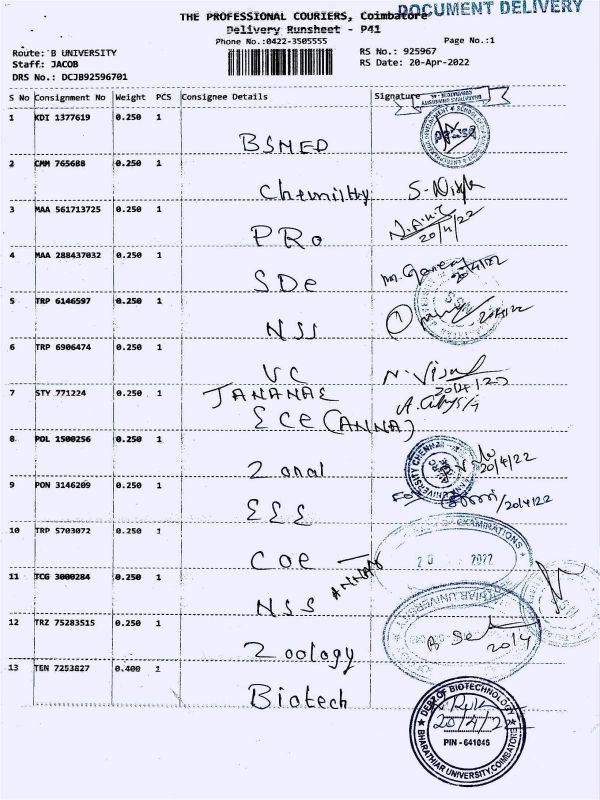 DOCUMENT DELIVERY
THE PROFESSIONAL COURIERS, Coimbatore
Delivery Runsheet - P41
Phone No.:0422-3505555
Page No.:1
Route: B UNIVERSITY
RS No.: 925967
Staff: JACOB
RS Date: 20-Apr-2022
DRS No.: DCJB92596701
S No Consignment No Weight PCS Consignee Details Signature
1 KDI 1377619 0.250 1
BSMED
2 CMM 765688 0.250 1
Chemistry
3 MAA 561713725 0.250 1
20/4/22
PRo
4 MAA 288437032 0.250 1
20/4/22
SDe
5 TRP 6146597 0.250 1
20/4/22
NSS
6 TRP 6906474 0.250 1
VC
N. Visal
20/4/22
7 STY 771224 0.250 1
JANANAE
ECE (ANNA)
8 POL 1500256 0.250 1
Zonal
20/4/22
9 PON 3146209 0.250 1
EEE
For
/20/4/22
10 TRP 5703072 0.250 1
EXAMINATIONS
20 2022
COE
11 TCG 3000284 0.250 1
NSS
12 TRZ 75283515 0.250 1
20/4
Zoology
13 TEN 7253827 0.400 1
Biotech
DEPT. OF BIOTECHNOLOGY
20/4/22
PIN - 641046
BHARATHIAR UNIVERSITY, COIMBATORE